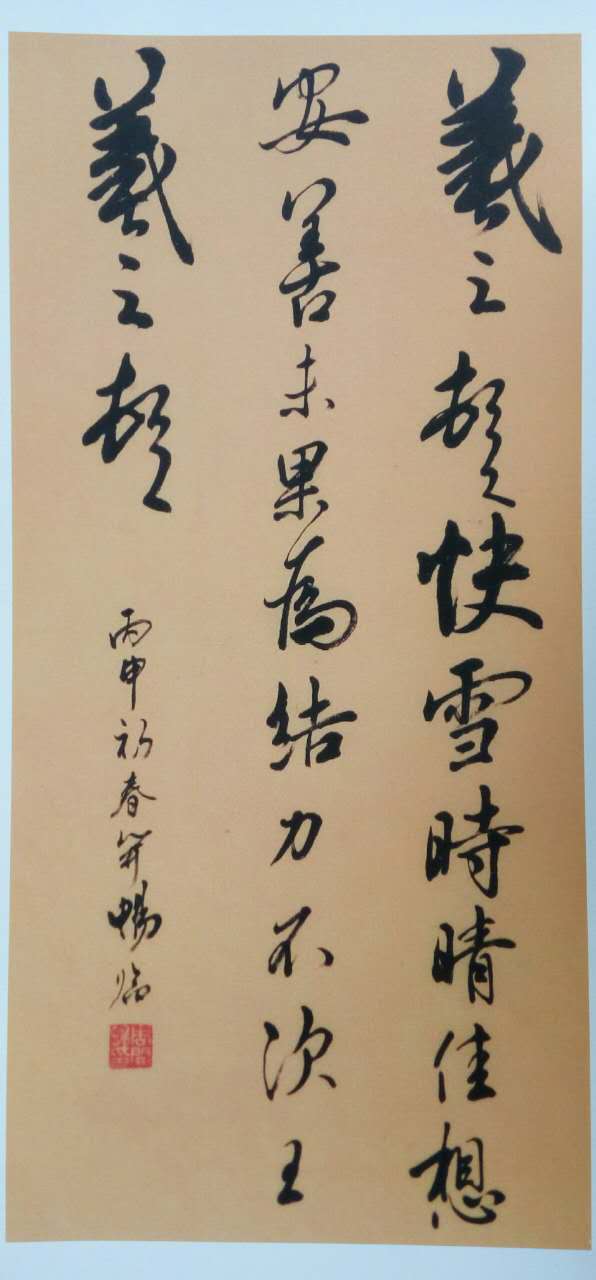 羲之頓首快雪時晴佳想
安善未果為結力不次王
羲之頓首
丙申初春開暢臨